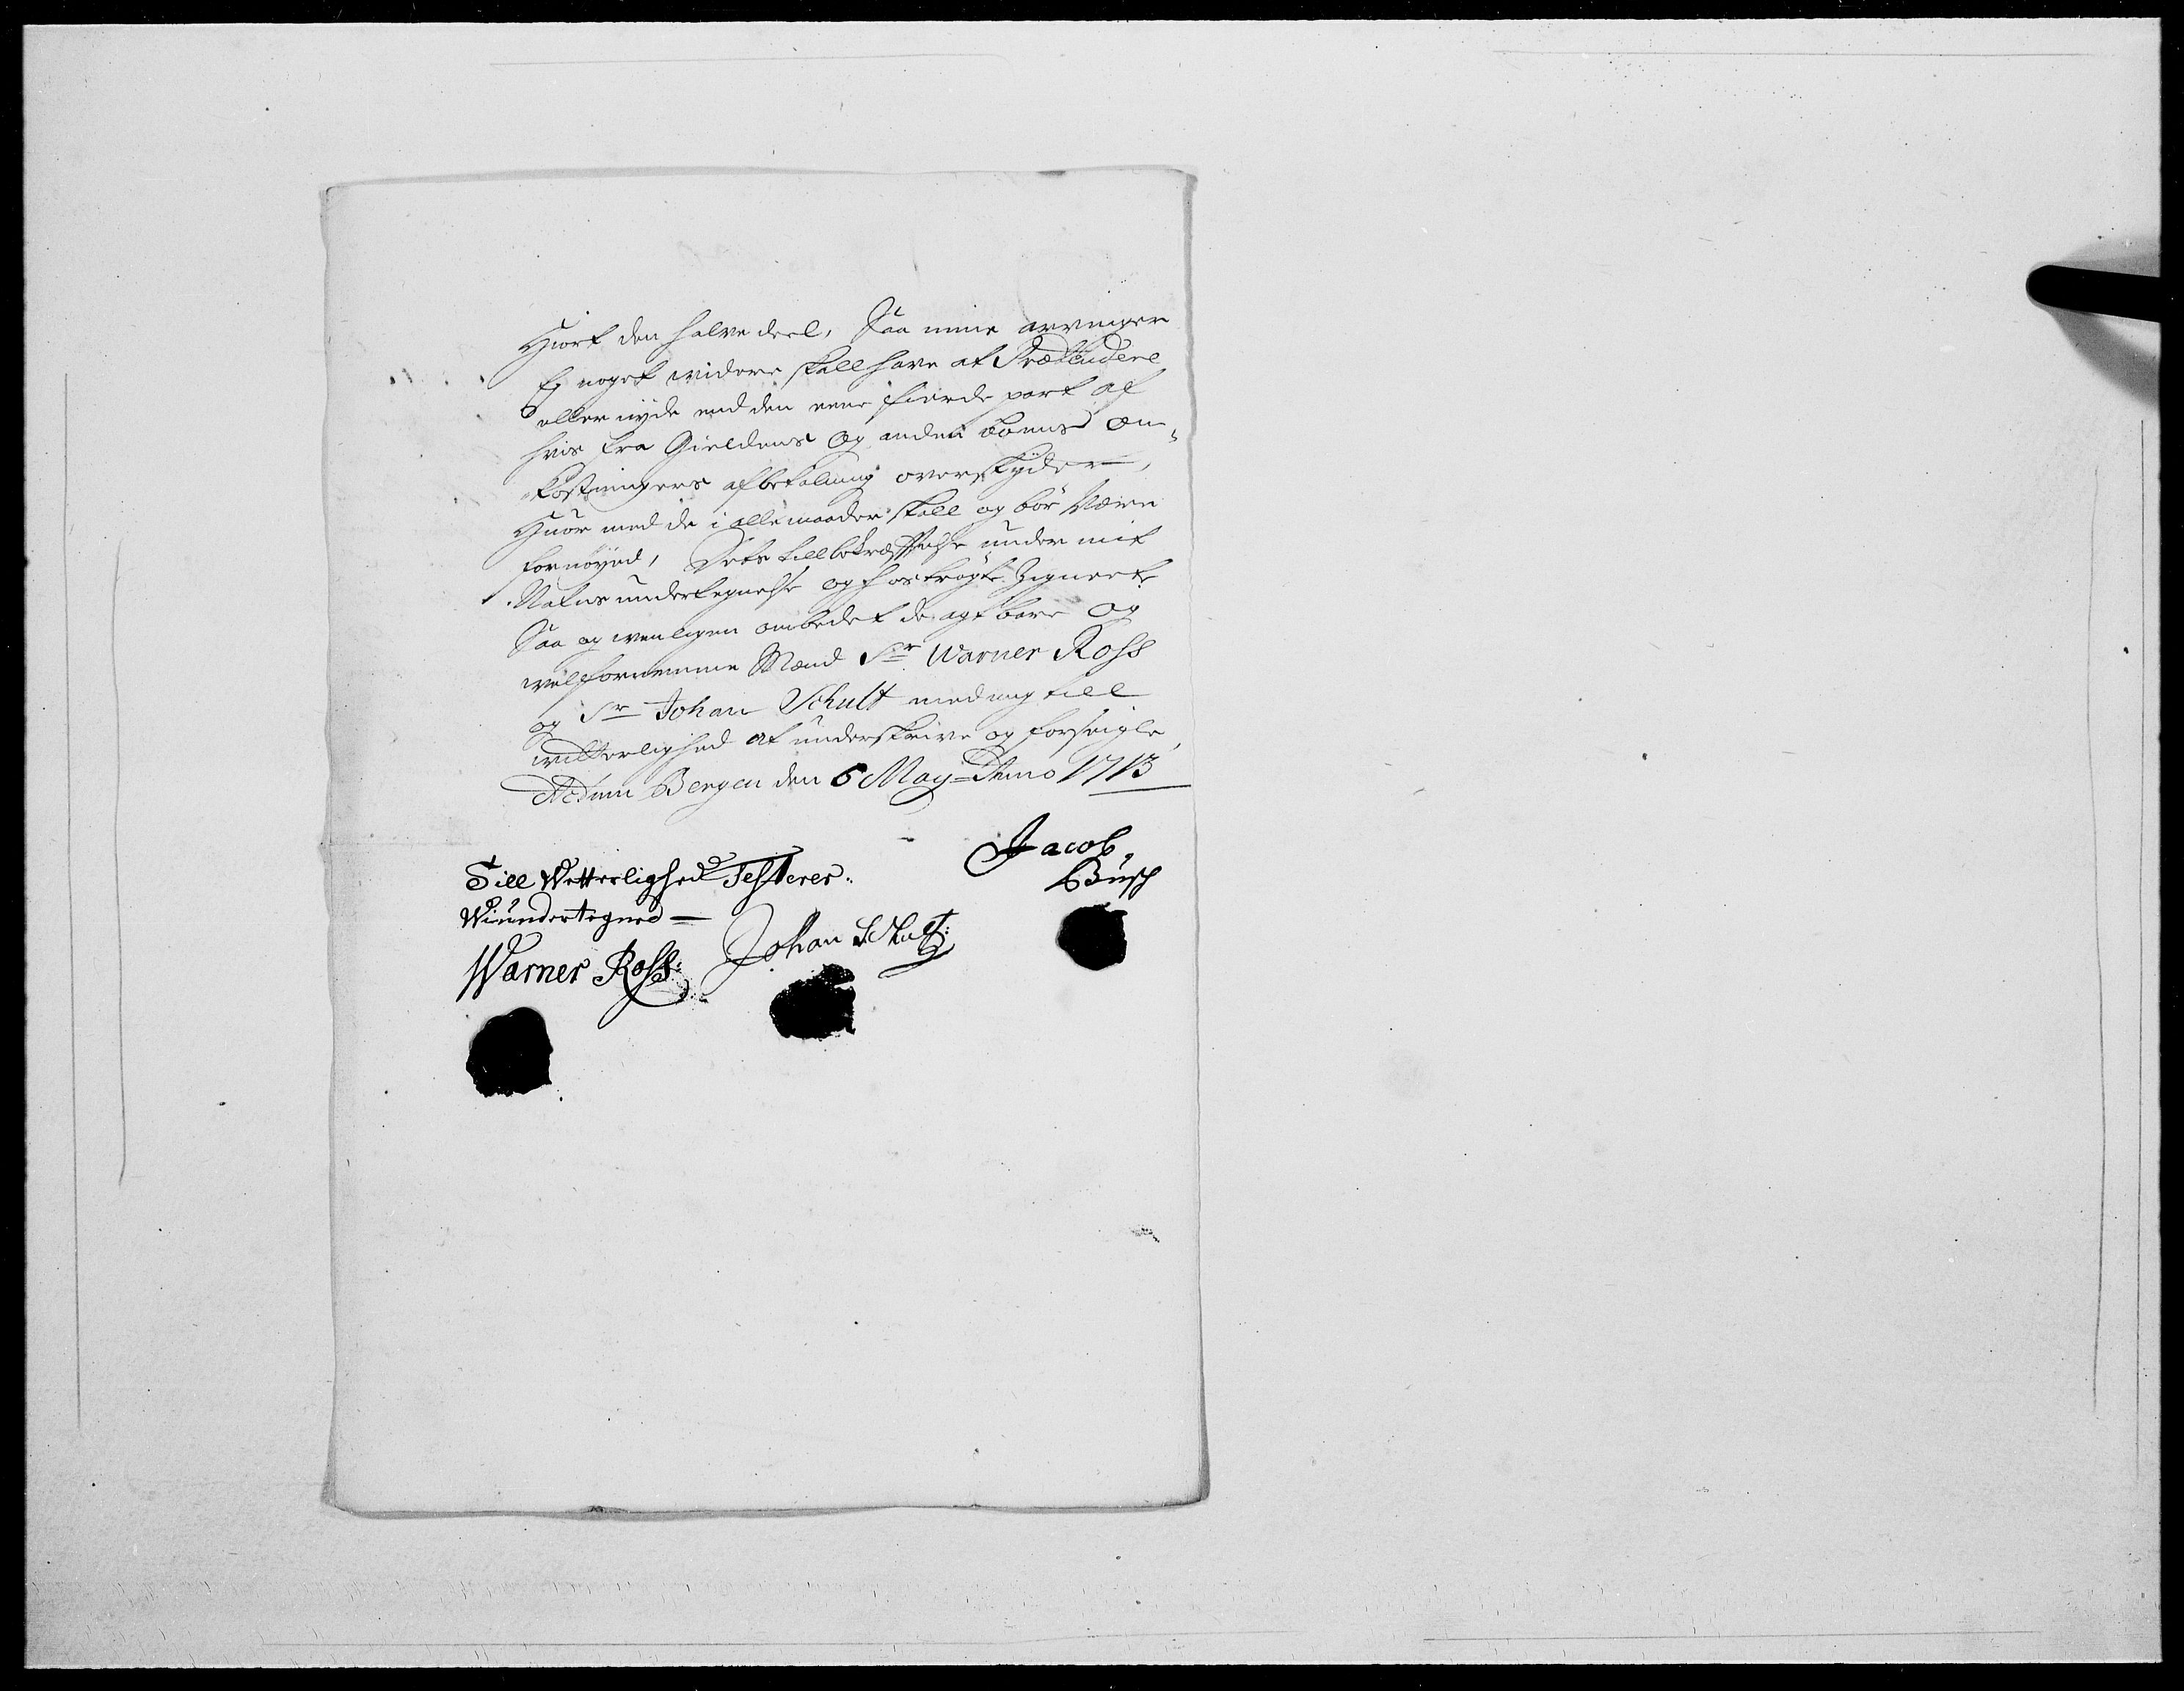 Hiort den halve deel, Saa mine arvinger
Ey noget widere skall have at Prætendere
eller nyde end den eene fierde part af
hvis fra Gieldens og anden boens om-
kostningers afbetaling overskyder,
Huor med de i alle maader skall og bör Være
fornöyed, Dets till bekræfftelse under mit
Nafns undertegnelse og hoströgte Zignette
Saa og wenligen ombedet de agtbare og
welfornemme Mænd Sr Warner Ross
og Sr Johan Schult med mig till
witterlighed at underskrive og forseigle,
Actum Bergen den 6 May Anno 1713
Jacob
Busch
Till Vetterlighed Testerer
Wi undertegned
Warner Ross: Johan Schult: